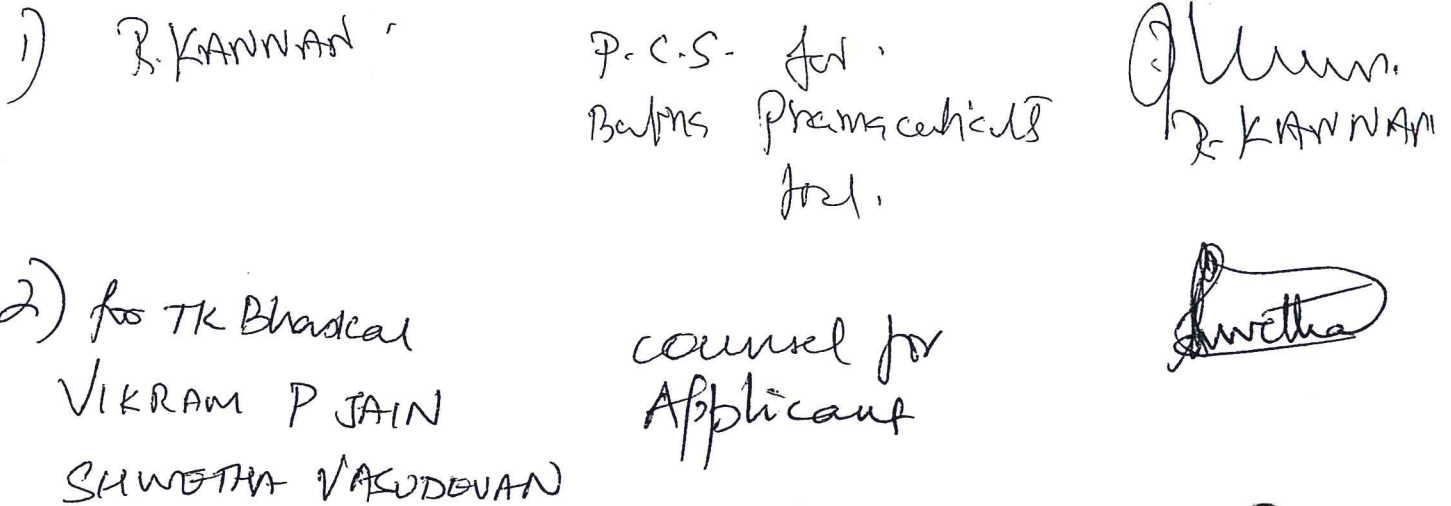 1) R. KANNAN
P.C.S. for
Pramaceuticals
R. KANNAN
2) for TK Bhaskar
VIKRAM P JAIN
SHWETHA VASUDEVAN
counsel for
Applicant
Shwetha